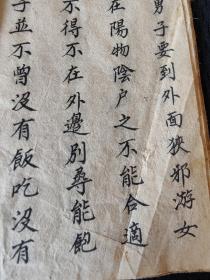 男子要到外面狹邪游女
在陽物陰户之不能合適
不得不在外邊別尋能飽
子並不曾没有飯吃没有